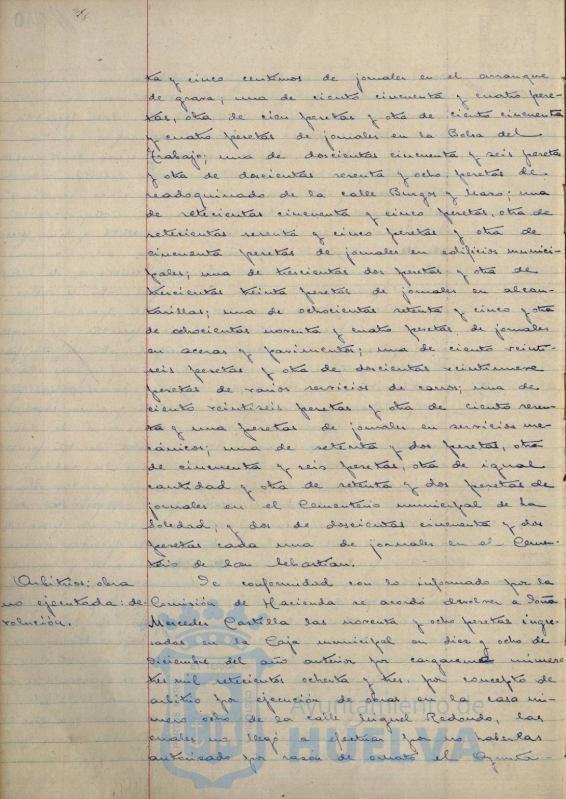 ta y cinco centimos de jornales en el arranque
de grava; una de ciento cincuenta y cuatro pese-
tas, otra de cien pesetas y otra de ciento cincuenta
y cuatro pesetas de jornales en la Bolsa del
Trabajo; una de doscientas cincuenta y seis pesetas
y otra de doscientas sesenta y ocho pesetas de
readoquinado de la calle Burgos y Mazo; una
de setecientas cincuenta y cinco pesetas, otra de
setecientas sesenta y cinco pesetas y otra de
cincuenta pesetas de jornales en edificios munici-
pales; una de trescientas dos pesetas y otra de
trescientas treinta pesetas de jornales en alcan-
tarillas; una de ochocientas setenta y cinco y otra
de ochocientas noventa y cuatro pesetas de jornales
en aceras y pavimentos; una de ciento veinti-
seis pesetas y otra de doscientas veintinueve
pesetas de varios servicios de carros; una de
ciento veintiseis pesetas y otra de ciento sesen-
ta y una pesetas de jornales en servicios me-
cánicos; una de setenta y dos pesetas, otra
de cincuenta y seis pesetas, otra de igual
cantidad y otra de setenta y dos pesetas de
jornales en el Cementerio municipal de la
Soledad; y dos de doscientas cincuenta y dos
pesetas cada una de jornales en el Cemen-
terio de San Sebastian.
Arbitrios; obra
no ejecutada: de-
volución.
De conformidad con lo informado por la
Comisión de Hacienda se acordó devolver a Doña
Mercedes Castilla las noventa y ocho pesetas ingre-
sadas en la Caja municipal en diez y ocho de
diciembre del año anterior por cargareme número
tres mil setecientos ochenta y tres, por concepto de
arbitrio por ejecución de obras en la casa nú-
mero ocho de la calle Miguel Redondo, las
cuales no llegó a efectuar por no haberlas
autorizado por razón de ornato el Ayunta-
Ayuntamiento de
HUELVA